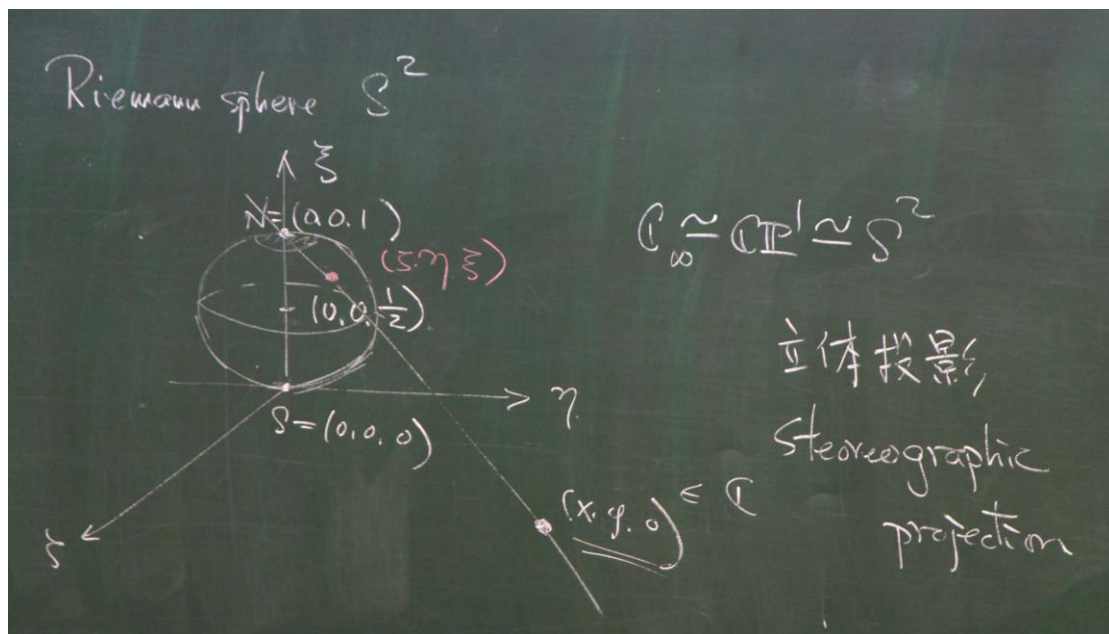 Riemann sphere S²
ξ
N=(0.0.1)
(ζ.η.ξ)
(0,0,1/2)
η
S=(0,0,0)
ζ
(x.y.0) ∈ ℂ
ℂ∞ ≃ ℂℙ¹ ≃ S²
立体投影
Stereographic
projection